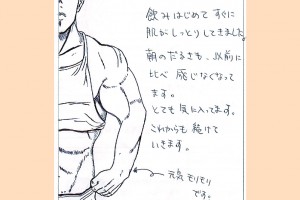 飲みはじめて すぐに
肌がしっとりしてきました。
朝のだるさも、以前に
比べ 感じなくなって
ます。
とても 気に入ってます。
これからも 続けて
いきます。
元気 モリモリ
です。